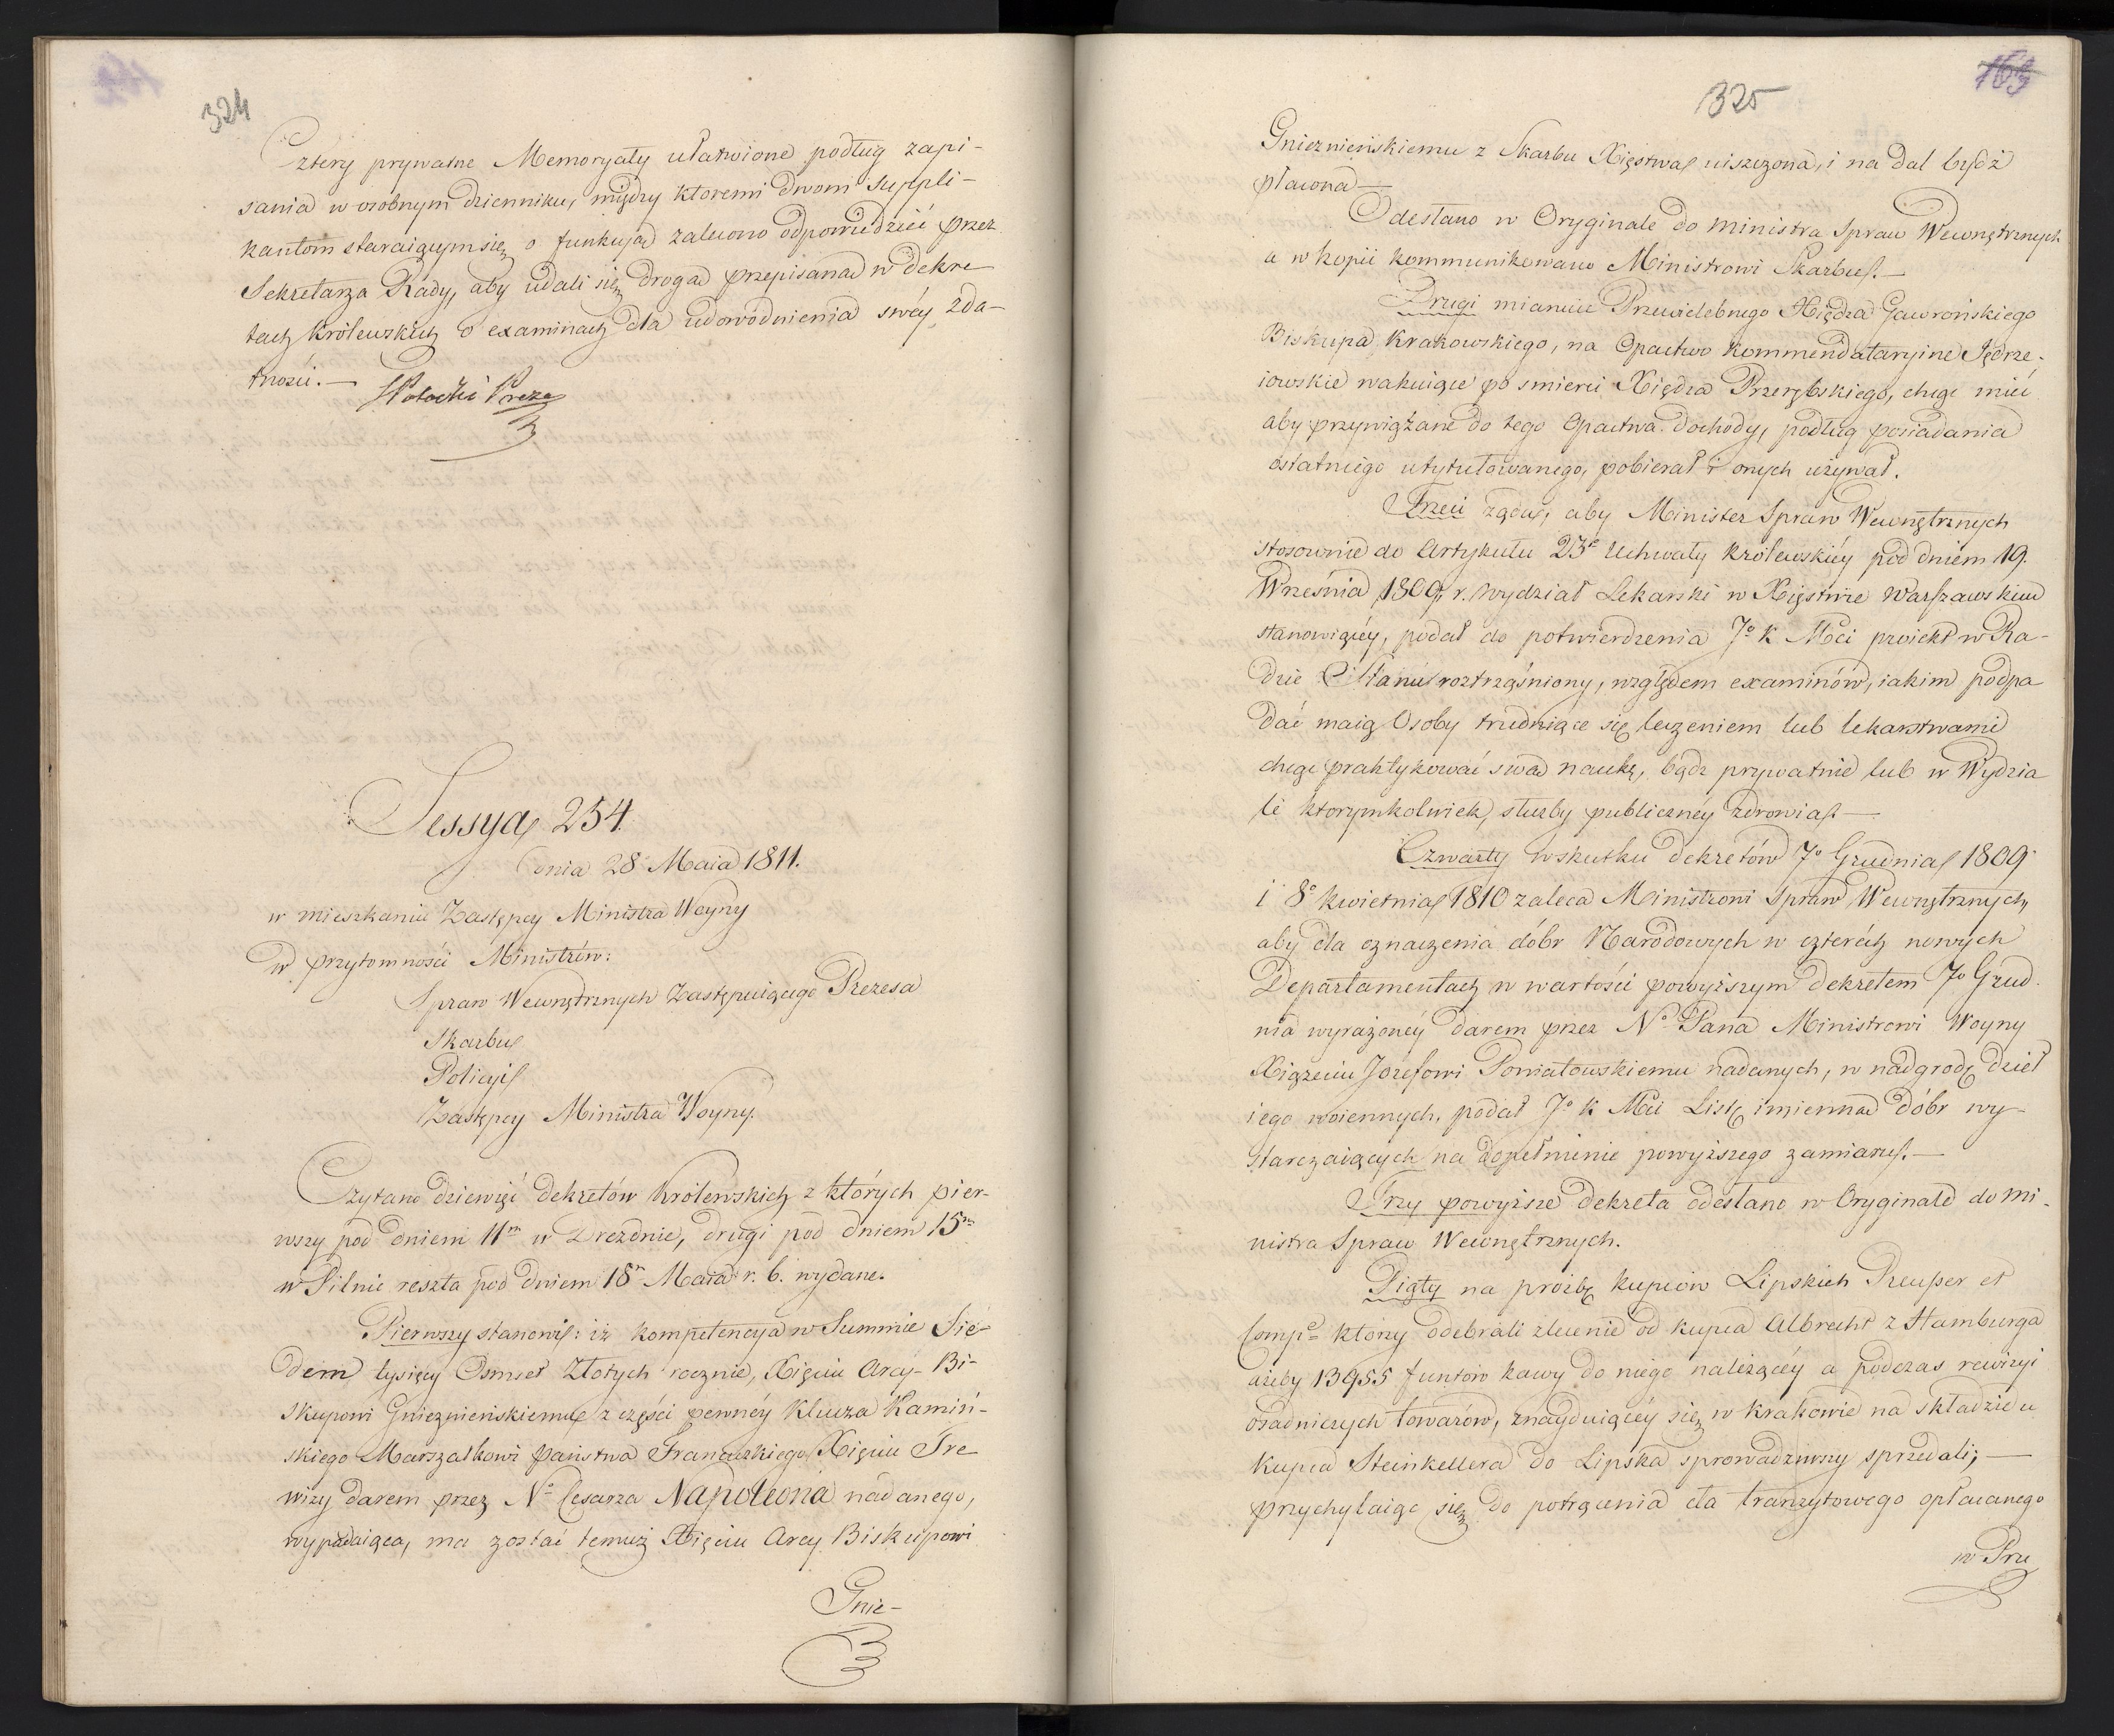 324
Cztery prywatne Memoryały ułatwione podług zapi-
sania w osobnym dzienniku, między ktoremi dwom Suppli-
kantom staraiącym się o funkcyą zalecono odpowiedzieć przez
Sekretarza Rady, aby udali się drogą przepisaną w dekre-
tach Królewskich o examinach dla udowodnienia swéy zda-
tności. —
Potocki Preze
Sessya 254.
Dnia 28 Maia 1811.
w mieszkaniu Zastępcy Ministra Woyny
w przytomności Ministrów:
Spraw Wewnętrznych Zastępuiącego Prezesa
Skarbu
Policyi
Zastępcy Ministra Woyny.
Czytano dziewięć dekretów Królewskich z których pier-
wszy pod dniem 11m w Dreźdnie, drugi pod dniem 15m
w Pilnie reszta pod dniem 18m Maia r. b. wydane.
Pierwszy stanowi: iż kompetencya w Summie Sie-
dem tysięcy Osmset Złotych rocznie, Xięciu Arcy-Bi-
skupowi Gnieznieńskiemu z części pewnéy Klucza Kamiń-
skiego Marszałkowi Państwa Francuzkiego Xięciu Tre-
wizy darem przez No Cesarza Napoleona nadanego,
wypadaiąca, ma zostać temuż Xięciu Arcy Biskupowi
Gnie-
163
325
Gnieznieńskiemu z Skarbu Xięstwa uiszczoną, i na dal bydź
płaconą —
Odesłano w Oryginale do Ministra Spraw Wewnętrznych
a w kopii kommunikowano Ministrowi Skarbu. —
Drugi mianuie Przewielebnego Xiędza Gawrońskiego
Biskupa Krakowskiego, na Opactwo kommendataryine Jędrze-
iowskie wakuiące po smierci Xiędza Przerębskiego, chcąc mieć
aby przywiązane do tego Opactwa dochody, podług posiadania
ostatniego utytułowanego, pobierał i onych używał.
Trzeci żąda, aby Minister Spraw Wewnętrznych
stosownie do Artykułu 23o Uchwały Królewskiéy pod dniem 19.
Września 1809 r. wydział Lekarski w Xięstwie Warszawskim
stanowiącéy, podał do potwierdzenia Jo K Mci proiekt w Ra-
dzie Stanu roztrząśniony, względem examinów, iakim podpa
dać maią Osoby trudniące się leczeniem lub lekarstwami
chcąc praktykować swą naukę, bądź prywatnie lub w Wydzia
le ktorymkolwiek, służby publicznéy zdrowia. —
Czwarty wskutku dekretów 7o Grudnia 1809
i 8o Kwietnia 1810 zaleca Ministrowi Spraw Wewnętrznych,
aby dla oznaczenia dóbr Narodowych w czterech nowych
Departamentach w wartości powyższym dekretem 7o Grud-
nia wyrażonéy darem przez No Pana Ministrowi Woyny
Xiążęciu Jozefowi Poniatowskiemu nadanych, w nadgrodę dzieł
iego woiennych, podał Jo K Mci Listę imienną dóbr wy-
starczaiących na dopełnienie powyższego zamiaru. —
Trzy powyższe dekreta odesłano w Oryginale do Mi-
nistra Spraw Wewnętrznych.
Piąty na prozbę kupców Lipskich Preusser et
Compo ktorzy odebrali zlecenie od kupca Albrecht z Hamburga
ażeby 13955 funtow kawy do niego należącéy a podczas rewizyi
osadniczych towarów, znayduiącéy się w Krakowie na składzie u
kupca Steinkellera do Lipska sprowadziwszy sprzedali; —
przychylaiąc się do potrącenia cła tranzytowego opłacanego
w Pru